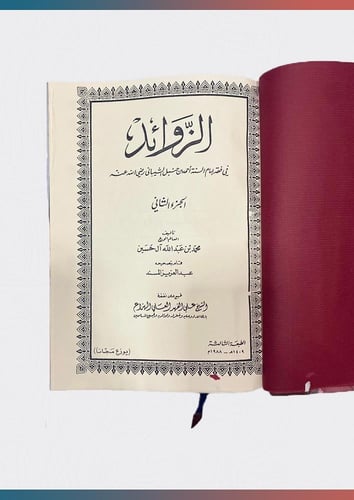 الزوائد
في فقه إمام السنة أحمد بن حنبل الشيباني رضي الله عنه
الجزء الثاني
تأليف
محمد بن عبد الله آل حسين
قام بتصحيحه
عبد العزيز المسند
طبع على نفقة
الشيخ علي الفهد العلي الهزاع
الطبعة الثالثة
١٤٠٩هـ - ١٩٨٨م
(يوزع مجانا)